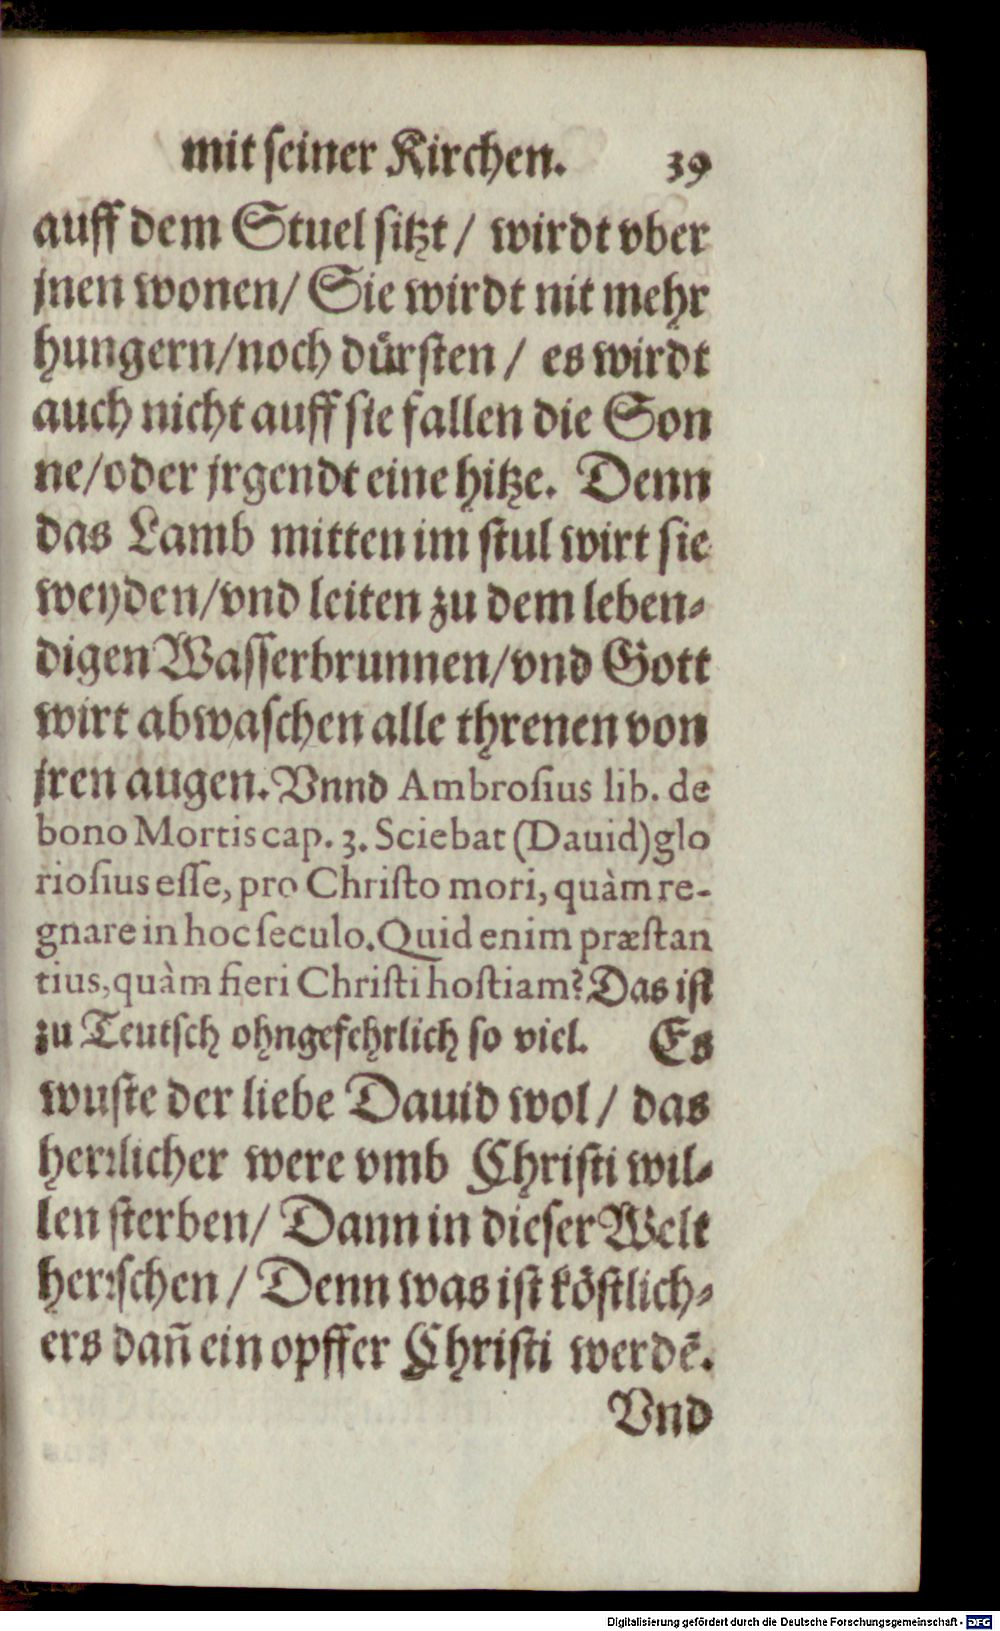 mit seiner Kirchen. 39
auff dem Stuel sitzt / wirdt vber
jnen wonen/ Sie wirdt nit mehr
hungern/noch duͤrsten / es wirdt
auch nicht auff sie fallen die Son
ne/oder jrgendt eine hitze. Denn
das Lamb mitten im stul wirt sie
weyden/vnd leiten zu dem leben⸗
digen Wasserbrunnen/vnd Gott
wirt abwaschen alle threnen von
jren augen. Vnnd Ambrosius lib. de
bono Mortis cap. 3. Sciebat (Dauid) glo
riosius esse, pro Christo mori, quàm re-
gnare in hoc seculo. Quid enim præstan
tius, quàm fieri Christi hostiam? Das ist
zu Teutsch ohngefehrlich so viel. Es
wuste der liebe Dauid wol / das
herꝛlicher were vmb Christi wil⸗
len sterben/ Dann in dieser Welt
herꝛschen / Denn was ist koͤstlich⸗
ers dañ ein opffer Christi werdẽ.
Vnd
Digitalisierung gefördert durch die Deutsche Forschungsgemeinschaft - DFG